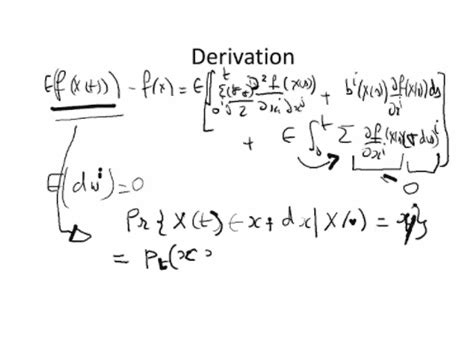 Derivation
E(f(X(t))) - f(x) = E[∫₀ᵗ Σ (σσ)/2 ∂²f/∂xᵢ∂xⁱ (X(s)) + bⁱ(X(s)) ∂f/∂xⁱ (X(s)) ds]
+ E ∫₀ᵗ Σ ∂f/∂xⁱ (X(s)) (σ dw)ⁱ
E(dwⁱ) = 0
= 0
Pr{X(t) ∈ x + dx | X(0) = x}
= Pt(x